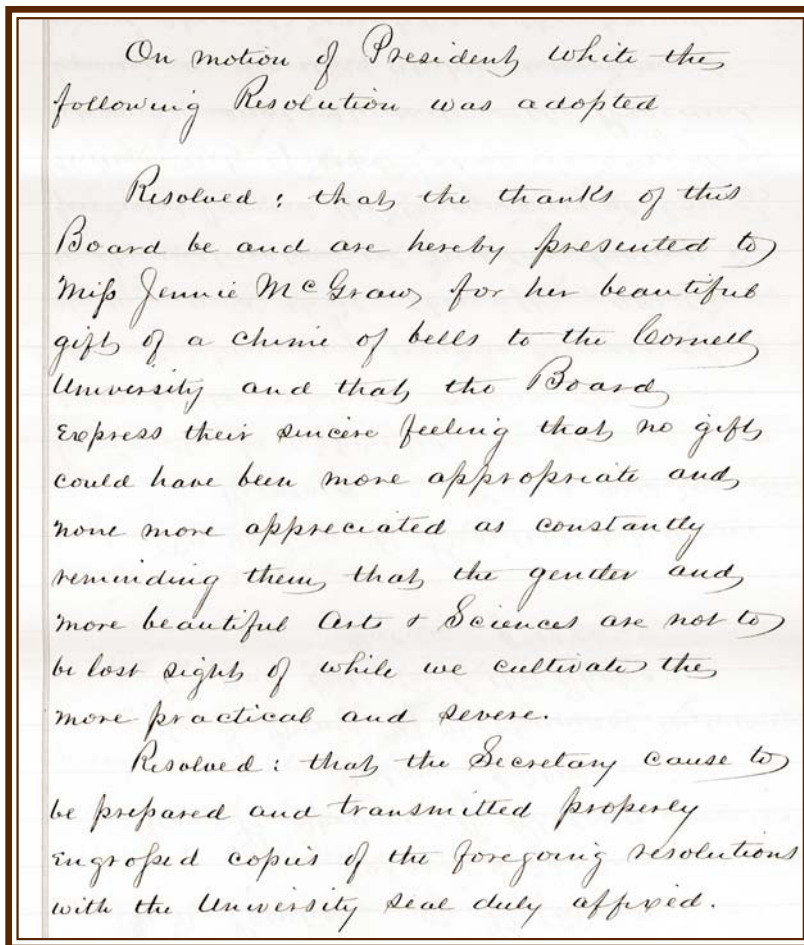 On motion of President White the
following Resolution was adopted
Resolved : that the thanks of this
Board be and are hereby presented to
Miſs Jennie McGraw, for her beautiful
gift of a chime of bells to the Cornell
University and that the Board
Express their sincere feeling that no gift
could have been more appropriate and
none more appreciated as constantly
reminding them that the gender and
more beautiful Arts & Sciences are not to
be lost sight of while we cultivate the
more practical and severe.
Resolved : that the Secretary cause to
be prepared and transmitted properly
Engroſsed copies of the foregoing resolutions
with the University seal duly affixed.